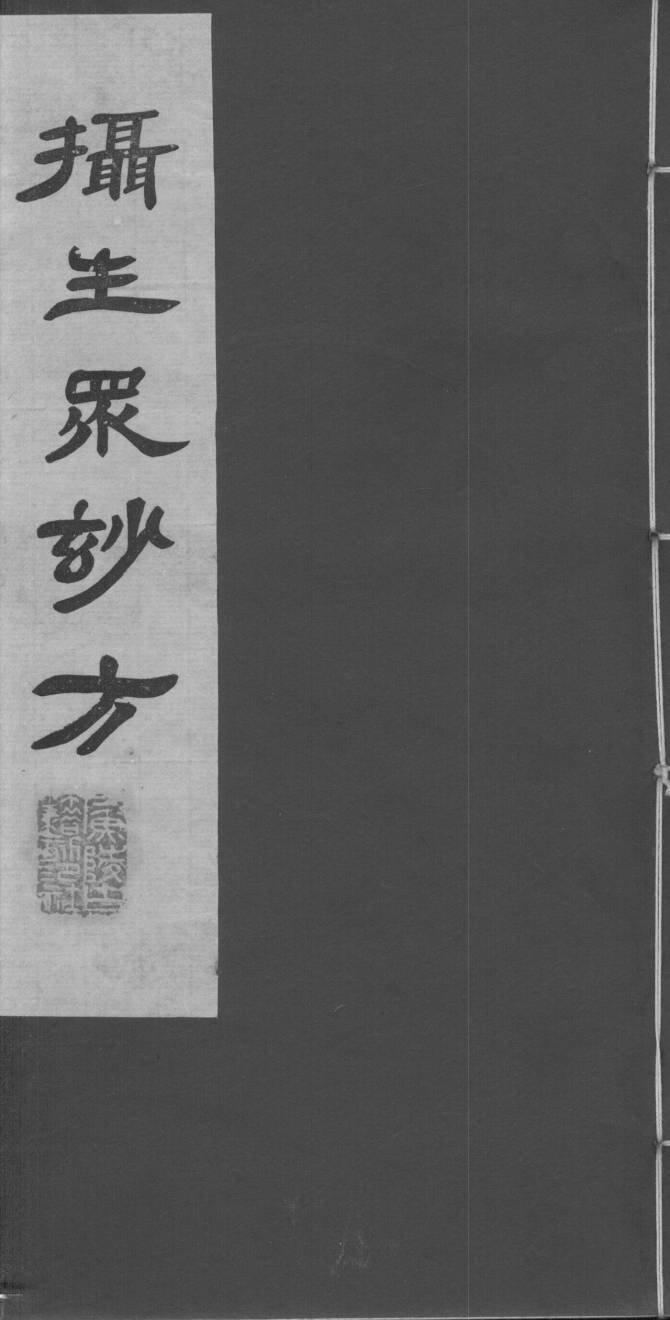 攝生眾𡥝方